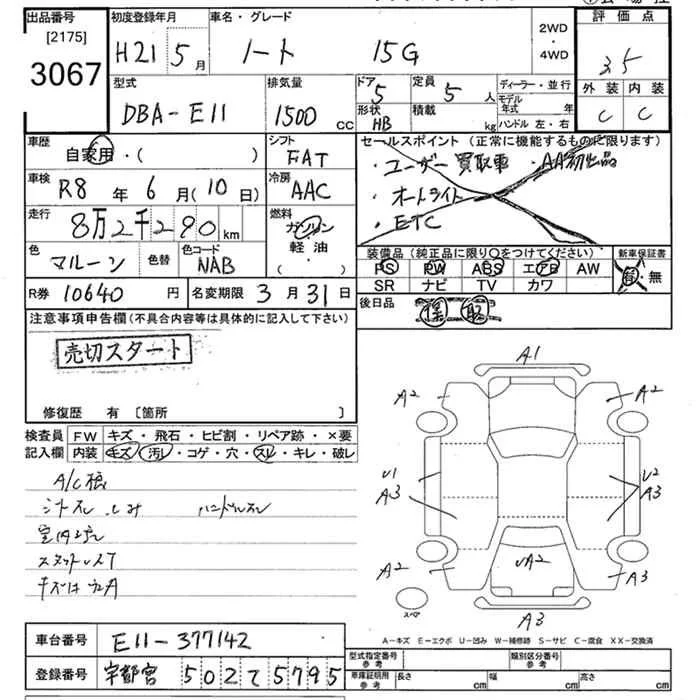 出品番号 初度登録年月 車名・グレード 2WD・4WD 評価点
[2175] 3067 H21 5月 ノート 15G 3.5
外装 内装
C C
型式 排気量 ドア 5 定員 5 人 ディーラー・並行
DBA-E11 1500 CC 形状 HB 積載 kg モデル年式 年
ハンドル 左・右
車歴 自家用・( ) シフト FAT
セールスポイント(正常に機能するものに限ります)
・ユーザー買取車 ・AA初出品
・オートライト
・ETC
車検 R8年6月(10日) 冷房 AAC
走行 8万2千290km 燃料 ガソリン 軽油 ・( )
色 マルーン 色替 色コード NAB
装備品(純正品に限り○をつけてください) 新車保証書
PS PW ABS エアB AW 有・無
SR ナビ TV カワ
R券 10640円 名変期限 3月31日
後日品 保 取
注意事項申告欄(不具合内容等は具体的に記入して下さい)
売切スタート
修復歴 有 〔箇所 〕
検査員記入欄 FW キズ・飛石・ヒビ割・リペア跡・×要
内装 キズ・汚レ・コゲ・穴・スレ・キレ・破レ
A/C
シートスレ シミ ハンドルスレ
A1
A2 A2
U1 U2
A3 A3
A2 UA2 A3
A3
スペア
A-キズ E-エクボ U-凹み W-補修跡 S-サビ C-腐食 XX-交換済
車台番号 E11-377142
登録番号 宇都宮 502 て 5795
型式指定番号 参考 類別区分番号 参考
車庫証明用 参考 長さ cm 幅 cm 高さ cm